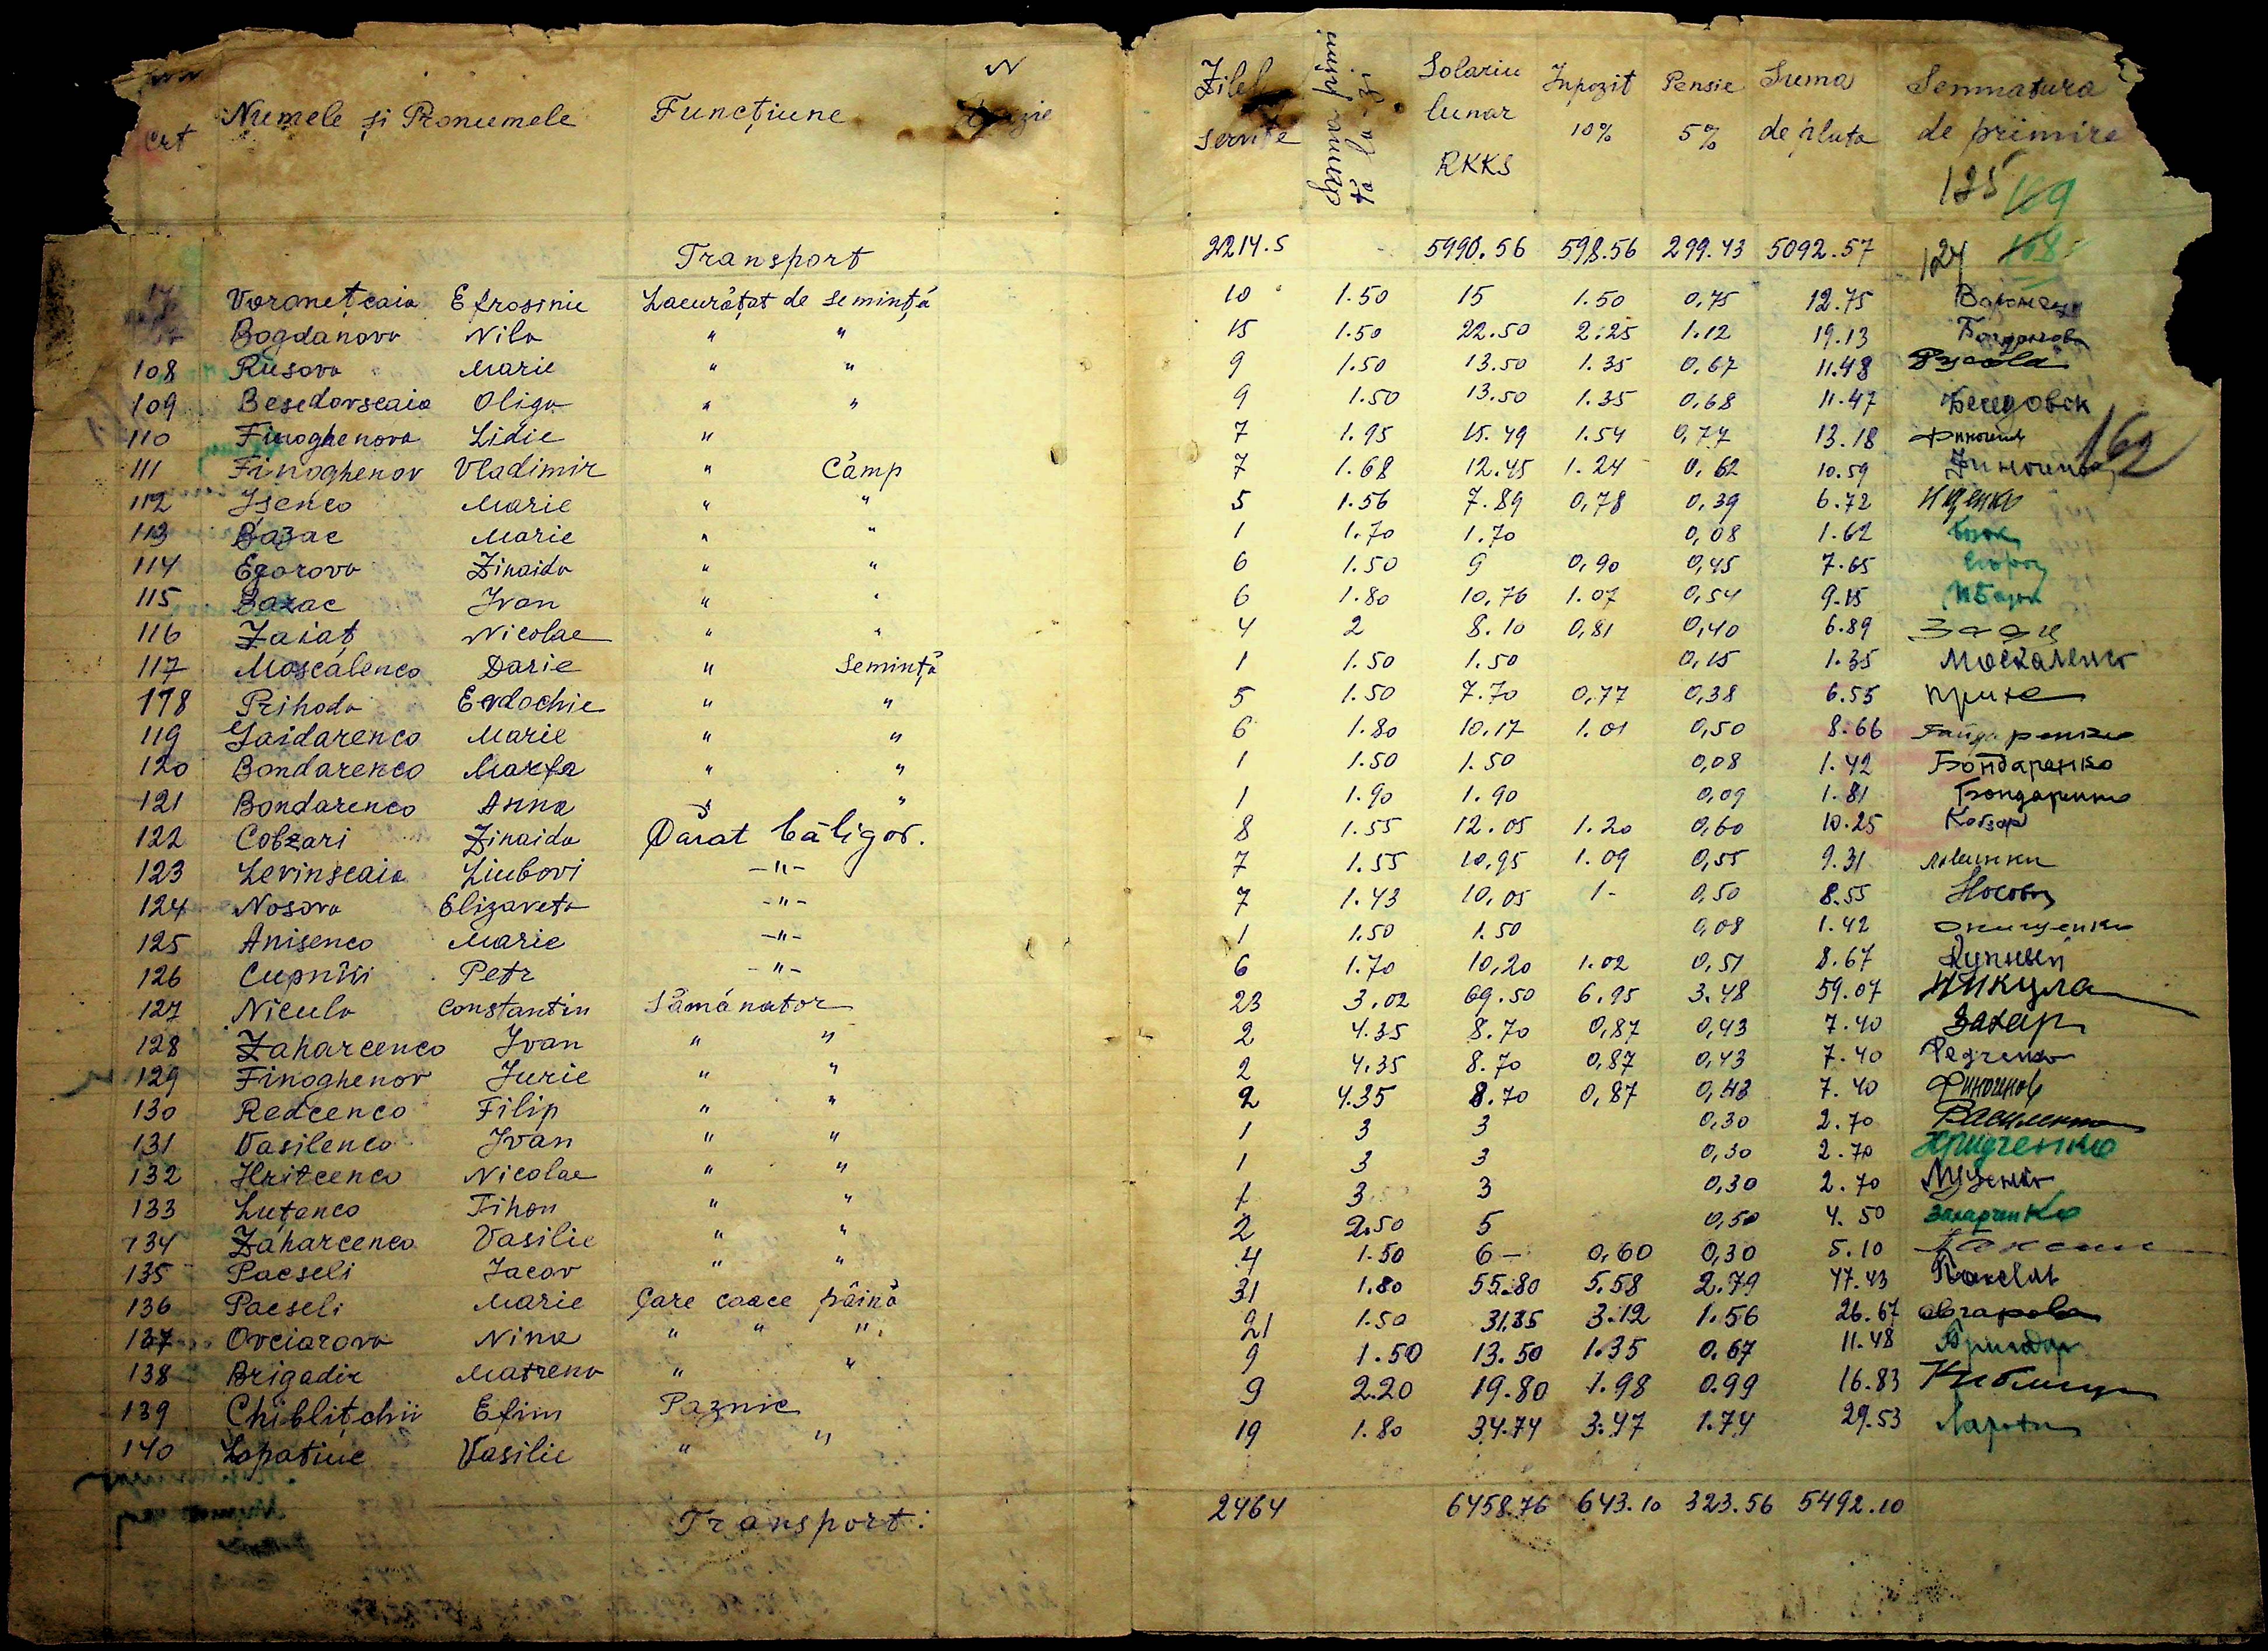 Crt Numele și Pronumele Funcțiune N
Zilel servite Solariu lunar RKKS Inpozit 10% Pensie 5% Suma de plata Semnatura de primire
125 169
124 168
Transport 2214.5 5990.56 598.56 299.43 5092.57
Voronețcaia Efrosinie Lacurățat de semință 10 1.50 15 1.50 0,75 12.75
Bogdanova Nila " " 15 1.50 22.50 2.25 1.12 19.13 Богданова
108 Rusova Marie " " 9 1.50 13.50 1.35 0,67 11.48 Русова
109 Besedovscaia Oliga " " 9 1.50 13.50 1.35 0,68 11.47 Беседовск
110 Finoghenova Lidie " 7 1.95 15.49 1.54 0,77 13.18
162
111 Finoghenov Vladimir " Câmp 7 1.68 12.45 1.24 0,62 10.59
112 Isenco Marie " " 5 1.56 7.89 0,78 0,39 6.72 Ищенко
113 Bazac Marie " " 1 1.70 1.70 0,08 1.62
114 Egorova Zinaida " " 6 1.50 9 0,90 0,45 7.65
115 Bazac Ivan " " 6 1.80 10,76 1.07 0,54 9.15
116 Zaiaț Nicolae " " 4 2 8.10 0,81 0,40 6.89 Заяц
117 Moscalenco Darie " Semință 1 1.50 1.50 0,15 1.35 Москаленко
118 Prihoda Evdochie " " 5 1.50 7.70 0,77 0,38 6.55 прихо
119 Gaidarenco Marie " " 6 1.80 10,17 1.01 0,50 8.66 Гайдаренко
120 Bondarenco Marfa " " 1 1.50 1.50 0,08 1.42 Бондаренко
121 Bondarenco Anna " " 1 1.90 1.90 0,09 1.81 Бондаренко
122 Cobzari Zinaida Cărat băligar. 8 1.55 12.05 1.20 0,60 10.25 Кобзар
123 Levinscaia Liubovi -"- 7 1.55 10,95 1.09 0,55 9.31
124 Nosova Elizaveta -"- 7 1.43 10,05 1- 0,50 8.55 Носова
125 Anisenco Marie -"- 1 1.50 1.50 0,08 1.42 Онищенко
126 Cupnîii Petr -"- 6 1.70 10,20 1.02 0,51 8.67 Купный
127 Nicula Constantin Sămănator 23 3,02 69.50 6.95 3.48 59.07 Никула
128 Zaharcenco Ivan " " 2 4.35 8.70 0,87 0,43 7.40 Захар
129 Finoghenov Iurie " " 2 4.35 8.70 0,87 0,43 7.40 Редченко
130 Redcenco Filip " " 2 4.35 8.70 0,87 0,43 7.40 Финогинов
131 Vasilenco Ivan " " 1 3 3 0,30 2.70 Василенко
132 Hritcenco Nicolae " " 1 3 3 0,30 2.70 Хридченко
133 Luțenco Tihon " " 1 3 3 0,30 2.70 Луценко
134 Zaharcenco Vasilie " " 2 2.50 5 0,50 4.50 Захарченко
135 Pacseli Iacov " " 4 1.50 6- 0,60 0,30 5.10
136 Pacseli Marie Care coace pâină 31 1.80 55.80 5.58 2.79 47.43
137 Ovciarova Nina " " " 21 1.50 31.35 3.12 1.56 26.67 Овчарова
138 Brigadir Matrena " " 9 1.50 13.50 1.35 0.67 11.48
139 Chiblițchii Efim Paznic 9 2.20 19.80 1.98 0.99 16.83
140 Lopatiuc Vasilie " " 19 1.80 34.74 3.47 1.74 29.53
Transport: 2464 6458.76 643.10 323.56 5492.10